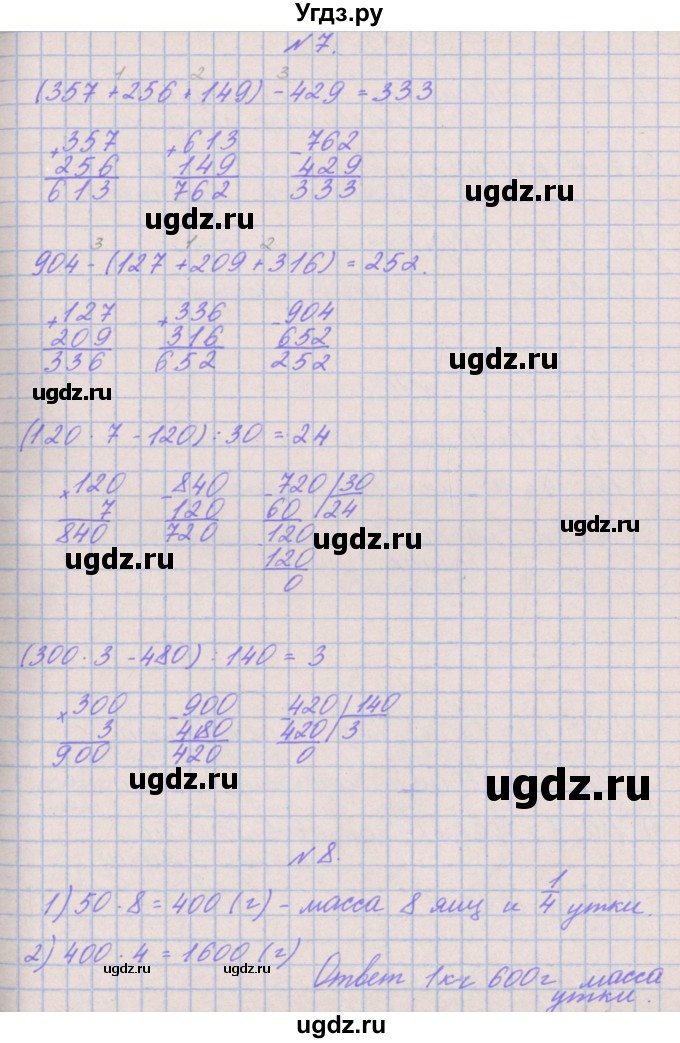 Угдз.ру
№7.
1 2 3
(357+256+149)-429=333
+357 +613 -762
256 149 429
613 762 333
ugdz.ru ugdz.ru
3 1 2
904-(127+209+316)=252.
+127 +336 -904
209 316 652
336 652 252
ugdz.ru ugdz.ru
(120·7-120):30=24
×120 -840 -720 30
7 120 60 24
840 720 -120
ugdz.ru ugdz.ru ugdz.ru
120
0
(300·3-480):140=3
×300 -900 -420 140
3 480 420 3
900 420 0
ugdz.ru ugdz.ru
№8.
1) 50·8=400 (г) - масса 8 яиц и 1/4 утки.
2) 400·4=1600 (г)
ugdz.ru ugdz.ru
Ответ 1кг 600г масса
утки.
ugdz.ru